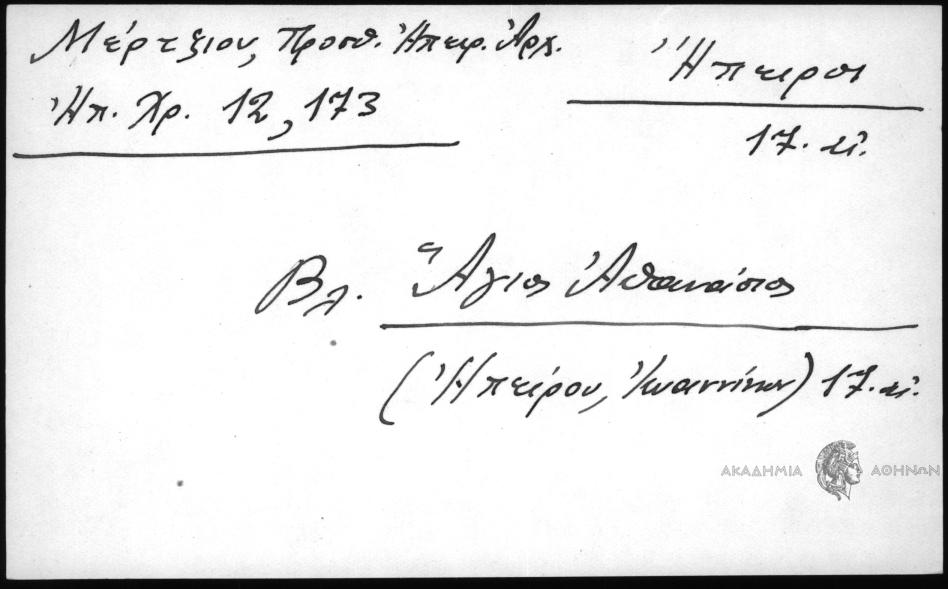 Μέρτζιου, Προσθ. Ἠπειρ. Ἀρχ.
Ἠπ. Χρ. 12, 173
Ἤπειρος
17. αἰ.
Βλ. Ἅγιος Ἀθανάσιος
(Ἠπείρου, Ἰωαννίνων) 17. αἰ.
ΑΚΑΔΗΜΙΑ ΑΘΗΝΩΝ